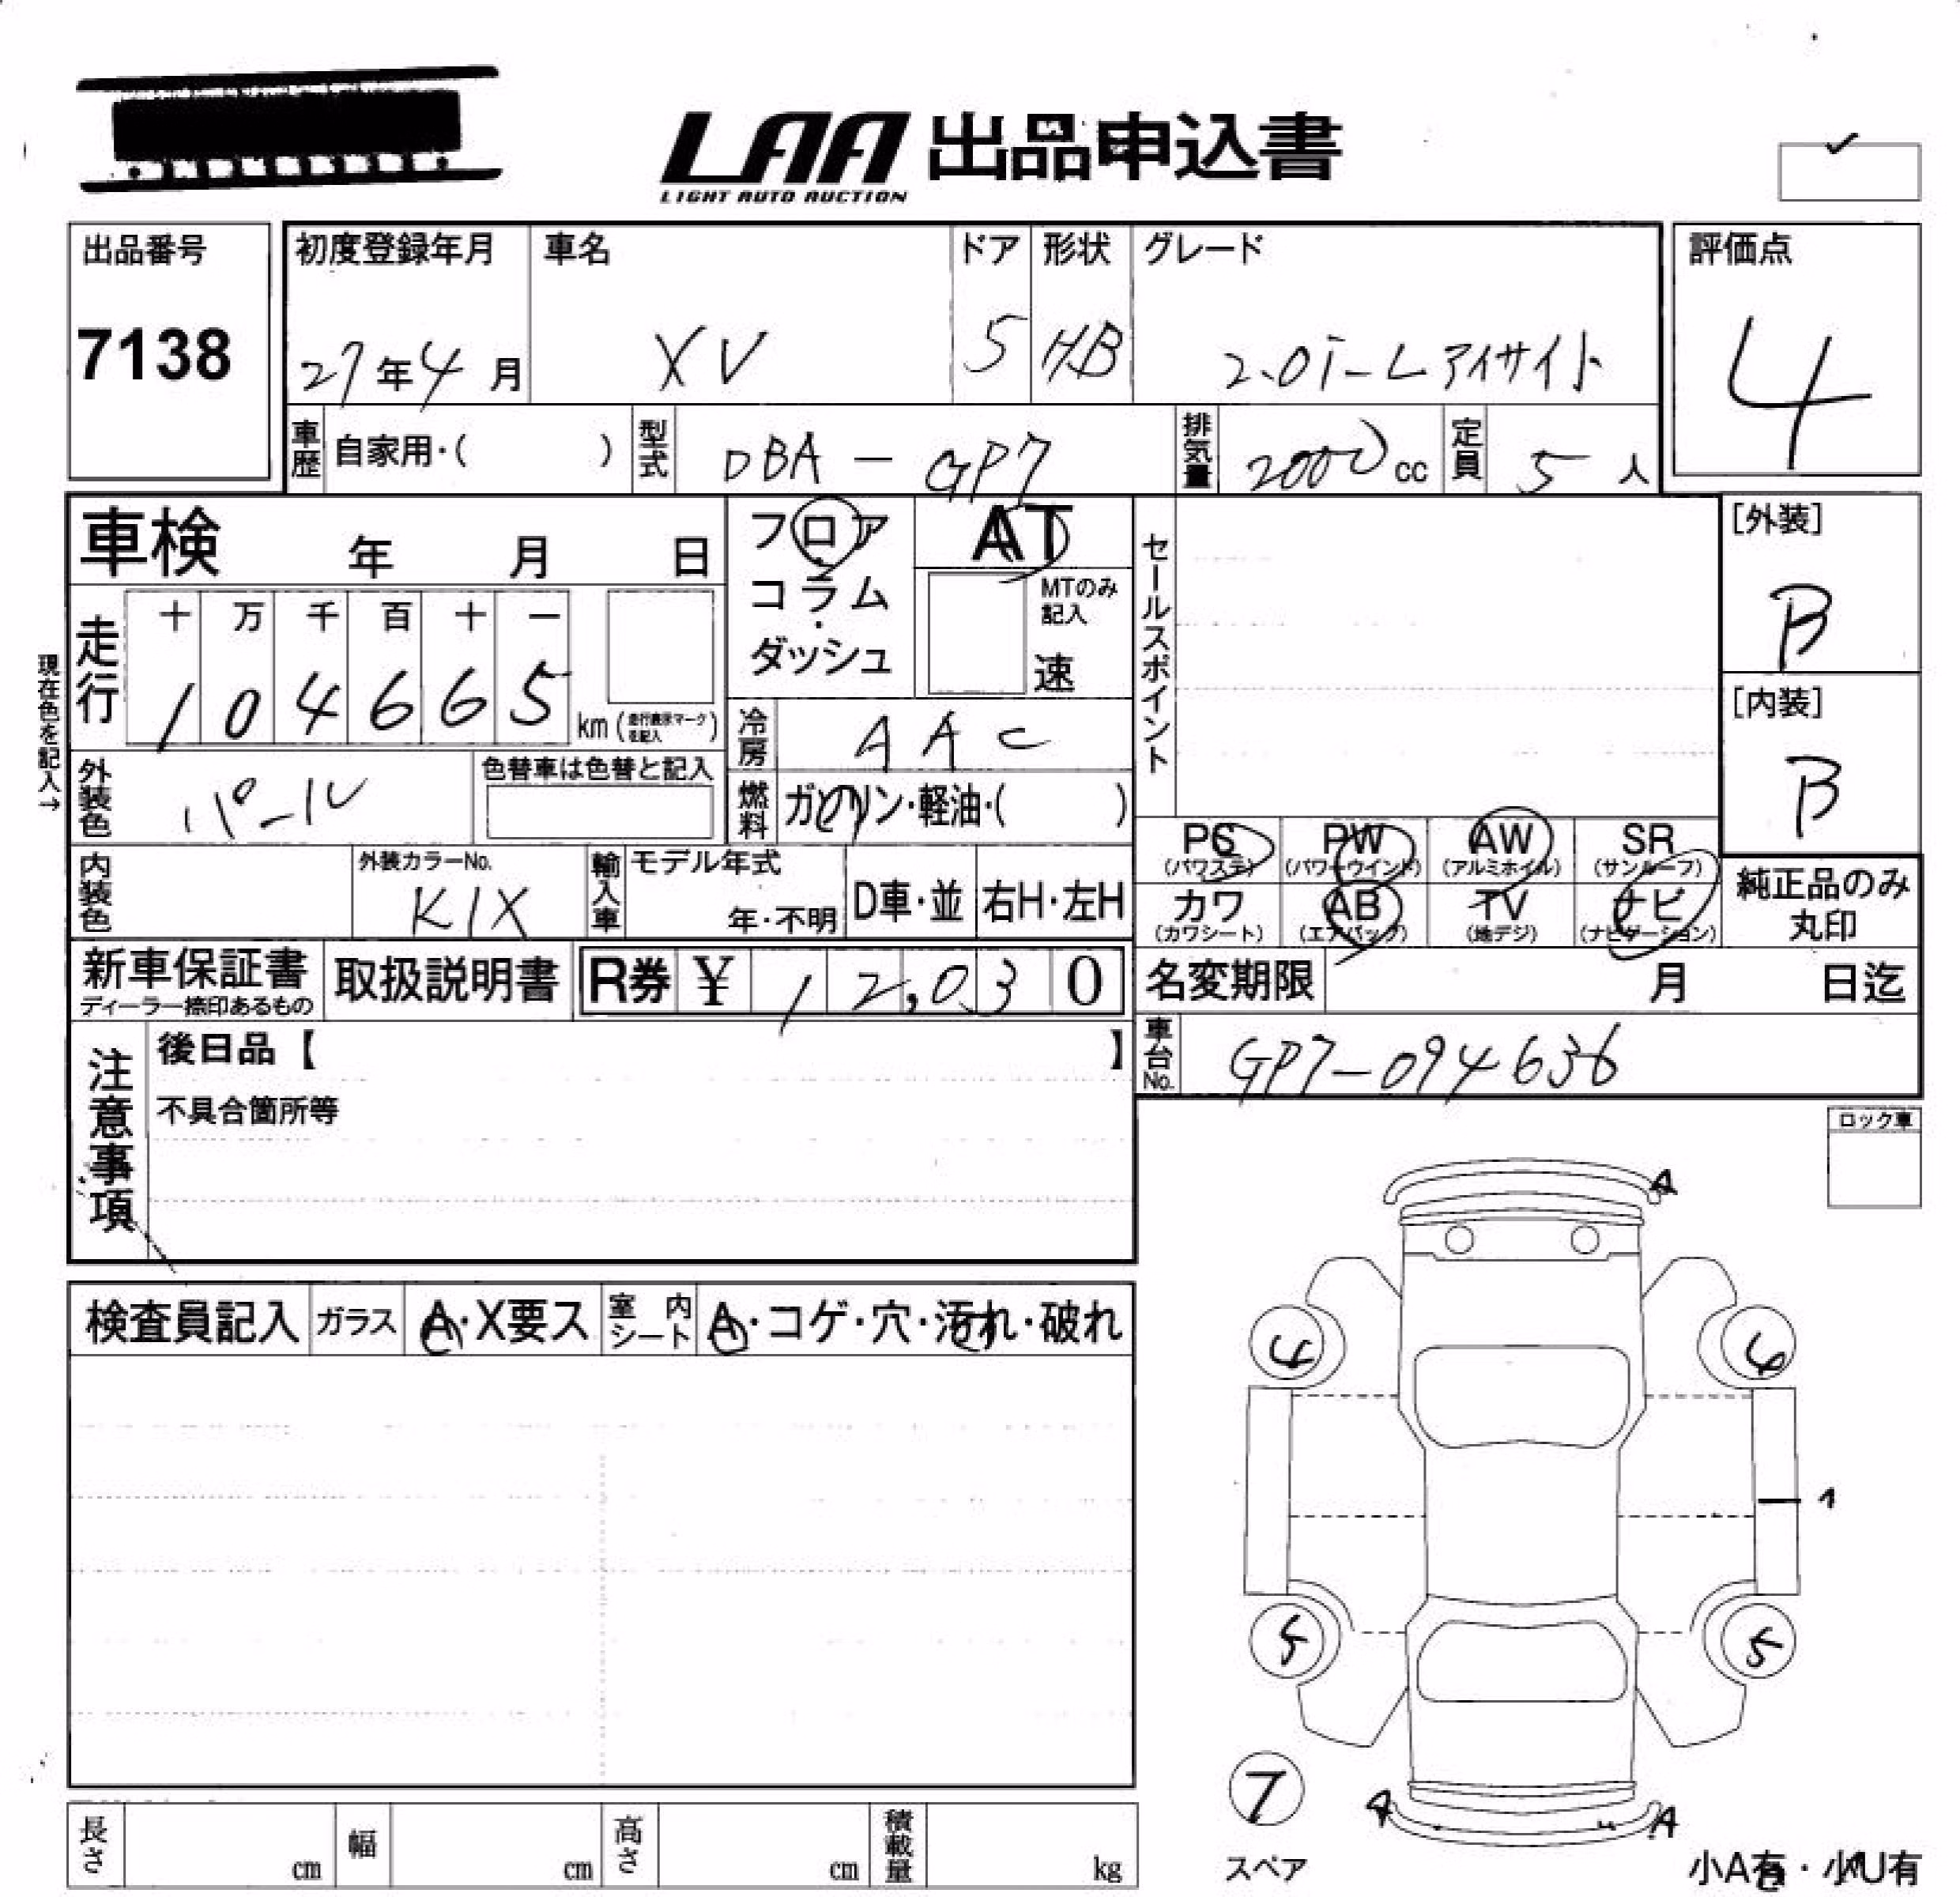 LAA 出品申込書
LIGHT AUTO AUCTION
出品番号
7138
初度登録年月 車名 ドア 形状 グレード
27年4月 XV 5 HB 2.0i-L アイサイト
評価点
4
車歴 自家用・( ) 型式 DBA-GP7 排気量 2000cc 定員 5人
車検 年 月 日
フロア・コラム・ダッシュ
AT
MTのみ記入
速
セールスポイント
[外装]
B
[内装]
B
現在色を記入→
走行 十 万 千 百 十 一
104665 km (走行表示マークを記入)
冷房 AAC
外装色 パール 色替車は色替と記入
燃料 ガソリン・軽油・( )
PS (パワステ) PW (パワーウインド) AW (アルミホイル) SR (サンルーフ)
カワ (カワシート) AB (エアバッグ) TV (地デジ) ナビ (ナビゲーション)
純正品のみ丸印
内装色 外装カラーNo. K1X 輸入車 モデル年式 年・不明 D車・並 右H・左H
新車保証書 ディーラー捺印あるもの 取扱説明書 R券 ¥ 12,030
名変期限 月 日迄
車台No. GP7-094636
注意事項 後日品【 】
不具合箇所等
ロック車
検査員記入 ガラス A・X要ス 室内シート A・コゲ・穴・汚れ・破れ
A
4 6
1
5 5
7
スペア
A A
小A有・小U有
長さ cm 幅 cm 高さ cm 積載量 kg